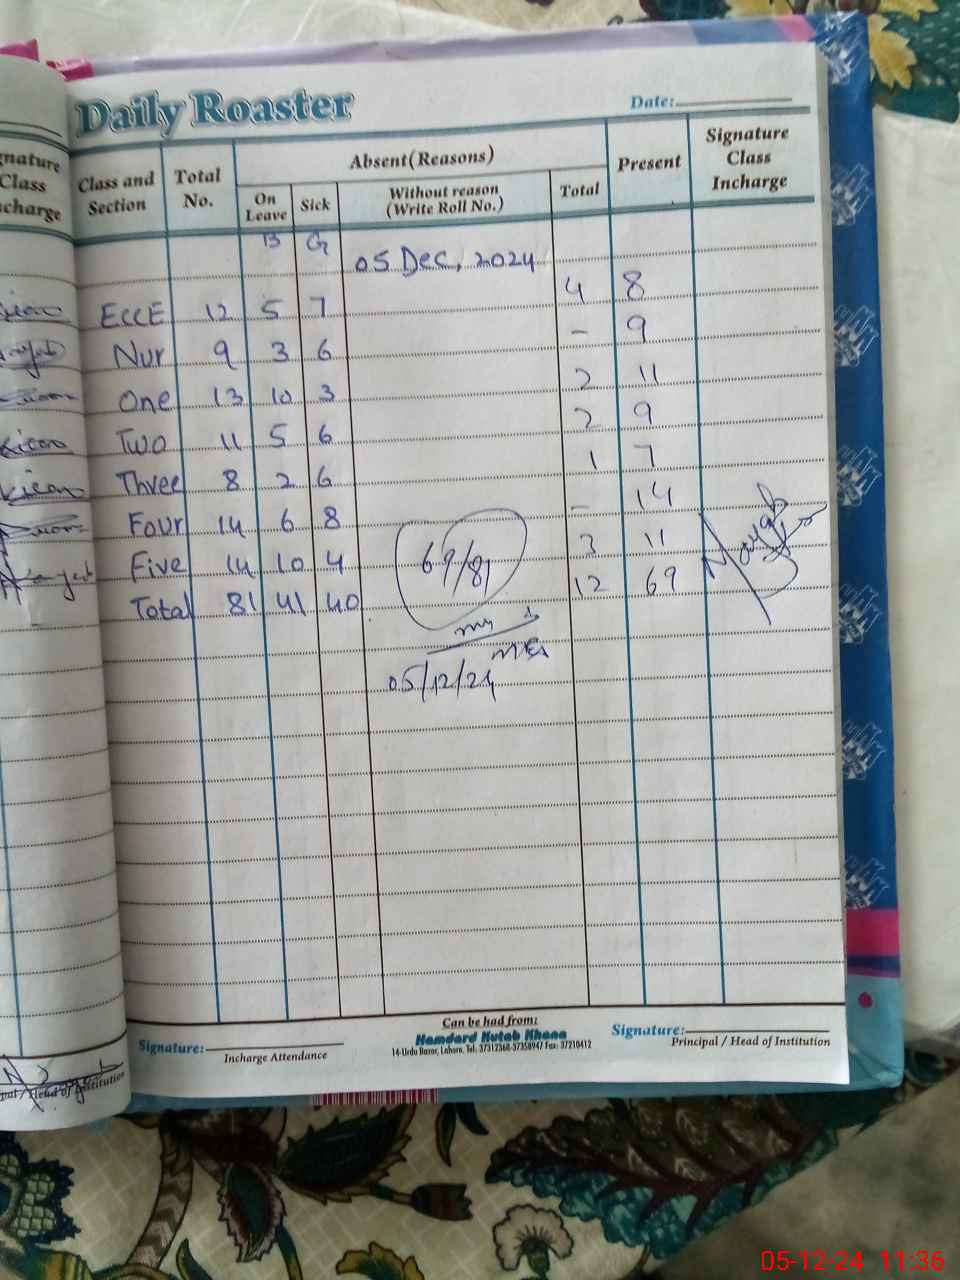 Daily Roaster
Date:
Class and Section Total No. Absent (Reasons) Present Signature Class Incharge
On Leave Sick Without reason (Write Roll No.) Total
B G 05 Dec, 2024
ECCE 12 5 7 4 8
Nur 9 3 6 - 9
One 13 10 3 2 11
Two 11 5 6 2 9
Three 8 2 6 1 7
Four 14 6 8 - 14
Five 14 10 4 3 11
Total 81 41 40 12 69
69/81
05/12/24
Signature:
Incharge Attendance
Can be had from:
Hamdard Kutab Khana
14-Urdu Bazar, Lahore. Tel: 37312368-37358947 Fax: 37210412
Signature:
Principal / Head of Institution
gnature
Class
charge
Head of Institution
05-12-24 11:36